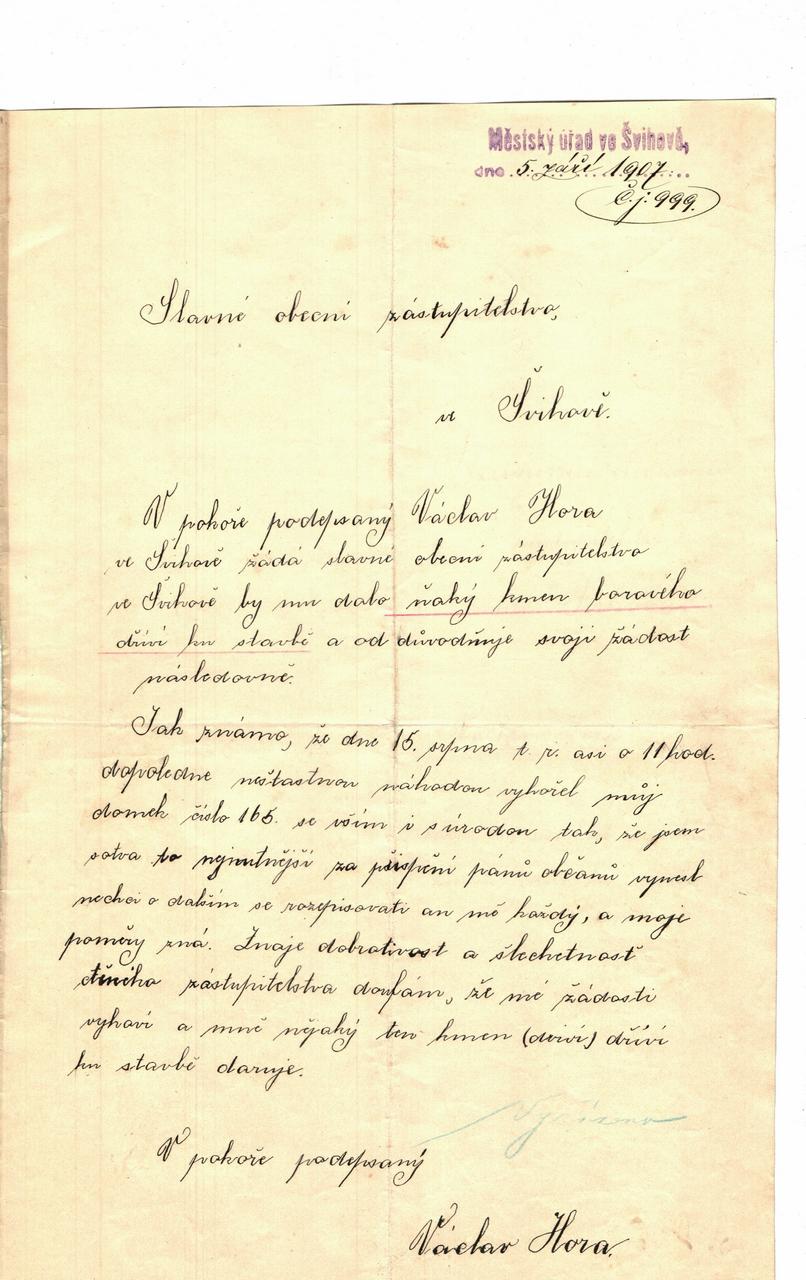 Městský úřad ve Švihově,
dne 5. září 1907
Č.j. 999.
Slavné obecní zástupitelstvo,
ve Švihově.
V pokoře podepsaný Václav Hora
ve Švihově žádá slavné obecní zástupitelstvo
ve Švihově by mu dalo ňaký kmen borového
dříví ku stavbě a od důvodňuje svoji žádost
následovně.
Jak známo, že dne 15. srpna t. r. asi o 11 hod.
dopoledne nešťastnou náhodou vyhořel můj
domek číslo 165. se vším i s úrodou tak, že jsem
sotva to nejnutnější za přispění pánů občanů vynesl
nechci o dalším se rozepisovati an mě každý, a moje
poměry zná. Znaje dobrotivost a šlechetnost
ctěného zástupitelstva doufám, že mé žádosti
vyhoví a mně nějaký ten kmen (driví) dříví
ku stavbě daruje.
Vyřízeno
V pokoře podepsaný
Václav Hora.